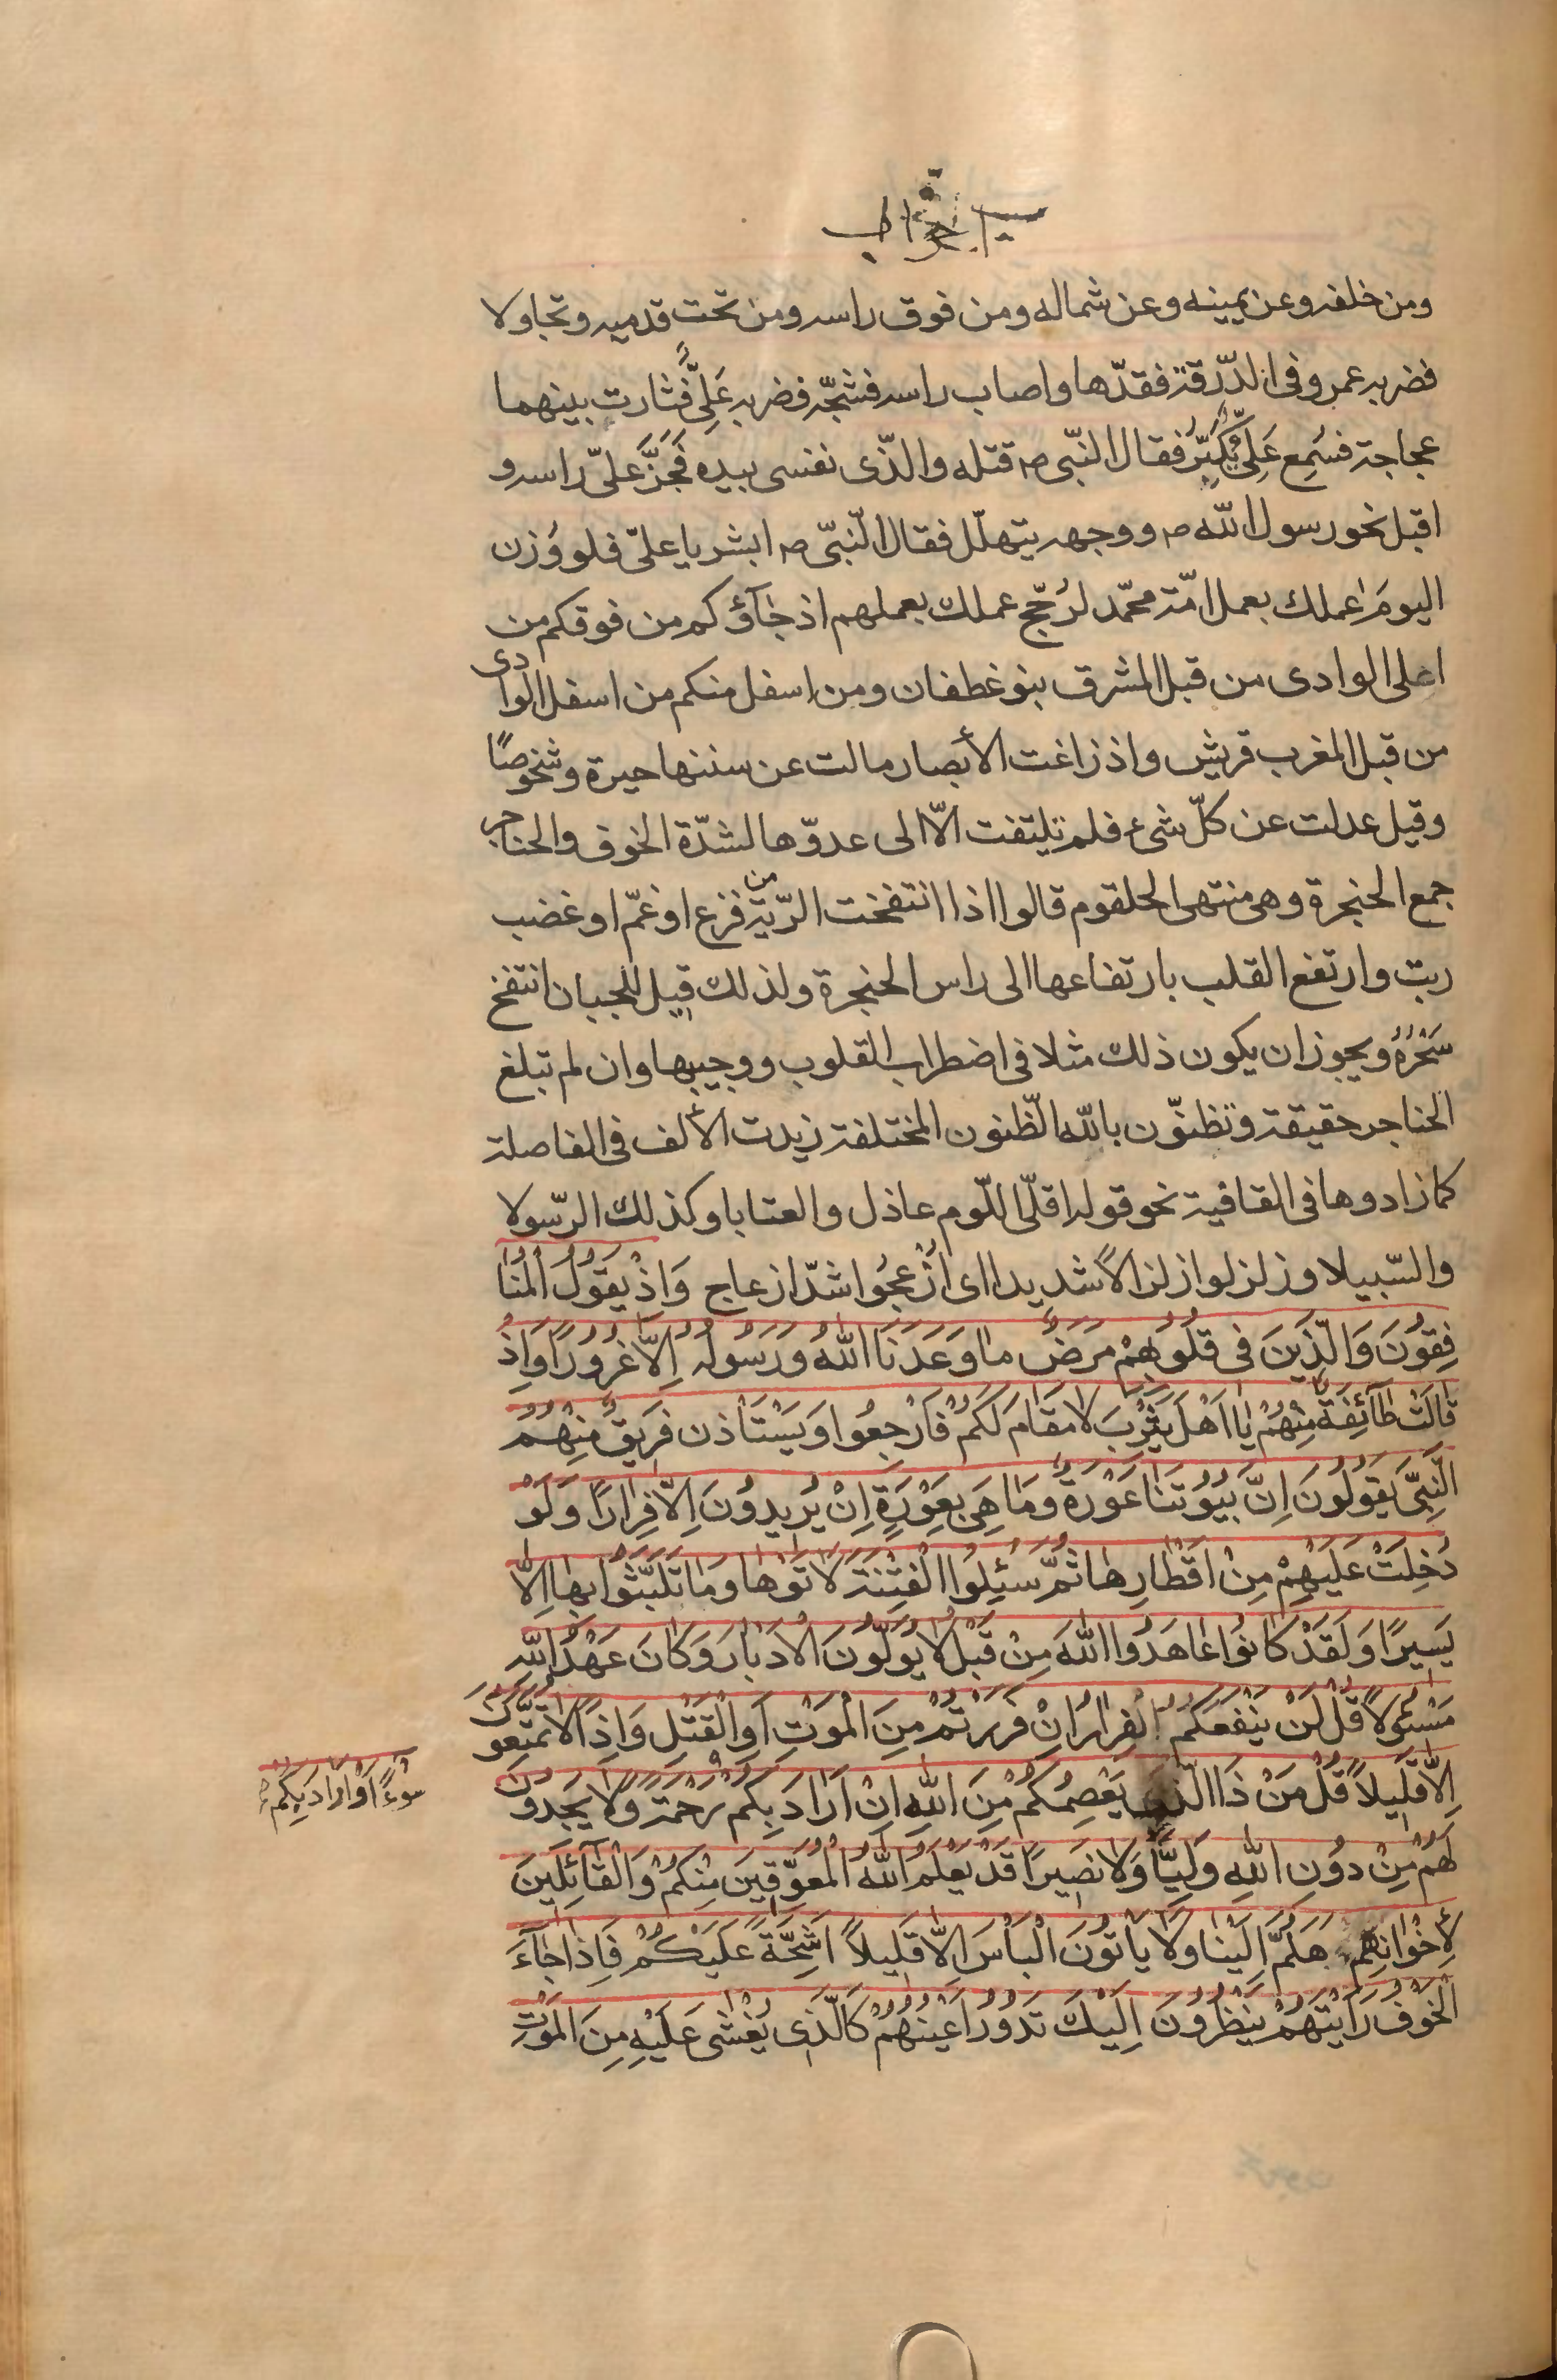 سورة الاحزاب
ومن خلفه وعن يمينه وعن شماله ومن فوق راسه ومن تحت قدميه وتجاولا
فضربه عمرو فى الدّرقة فقدّها واصاب راسه فشجّه فضربه عَلِىٌّ فثارت بينهما
عجاجة فسُمِع عَلِىٌّ يُكَبِّرُ فقال النّبى ص قتله والذّى نفسى بيده فَجَزَّ علىّ راسه و
اقبل نحو رسول اللّه ص ووجهه يتهلّل فقال النّبىّ ص ابشر يا علىّ فلو وُزن
اليومَ عملك بعمل امّة محمّد لرُجّح عملك بعملهم اذ جٰآؤكم من فوقكم من
اعلى الوادى من قبل المشرق بنو غطفان ومن اسفل منكم من اسفل الوادى
من قبل المغرب قريش واذ زاغت الأبصار مالت عن سننها حيرة وشخوصًا
وقيل عدلت عن كلّ شىء فلم تلتفت الّا الى عدوّها لشدّة الخوف والحناجر
جمع الحنجرة وهى منتهى الحلقوم قالوا اذا انتفخت الرّية من فزع او غمّ او غضب
ربت وارتفع القلب بارتفاعها الى راس الحنجرة ولذلك قيل للجبان انتفخ
سَحْرُهُ ويجوز ان يكون ذلك مثلا فى اضطراب القلوب ووجيبها وان لم تبلغ
الحناجر حقيقة وتظنّون باللّه الظّنون المختلفة زيدت الألف فى الفاصلة
كما زادوها فى القافية نحو قوله اقلّى اللّوم عاذل والعتابا وكذلك الرّسولا
والسّبيلا وزلزلوا زلزالاً شديدا اى ازْعجُوا اشدّ ازعاج وَاِذْ يَقُولُ الْمُنٰا
فِقُونَ وَالَّذِينَ فى قُلُوبِهِمْ مَرَضٌ مٰا وَعَدَنَا اللّٰهُ وَرَسُولُهُ اِلّٰا غُرُورًا وَاِذْ
قٰالَتْ طٰآئِفَةٌ مِنْهُمْ يٰا اَهْلَ يَثْرِبَ لٰا مُقٰامَ لَكُمْ فَارْجِعُوا وَيَسْتَاْذن فَرِيقٌ مِنْهُمُ
النَّبِىَّ يَقُولُونَ اِنَّ بُيُوتَنٰا عَوْرَةٌ وَمٰا هِىَ بِعَوْرَةٍ اِنْ يُرِيدُونَ اِلّٰا فِرٰارًا وَلَوْ
دُخِلَتْ عَلَيْهِمْ مِنْ اَقْطٰارِهٰا ثُمَّ سُئِلُوا الْفِتْنَةَ لَاٰتَوْهٰا وَمٰا تَلَبَّثُوا بِهٰا اِلّٰا
يَسِيرًا وَلَقَدْ كٰانُوا عٰاهَدُوا اللّٰهَ مِنْ قَبْلُ لٰا يُوَلُّونَ الْاَدْبٰارَ وَكٰانَ عَهْدُ اللّٰهِ
مَسْئُولًا قُلْ لَنْ يَنْفَعَكُمُ الْفِرٰارُ اِنْ فَرَرْتُمْ مِنَ الْمَوْتِ اَوِ الْقَتْلِ وَاِذًا لٰا تُمَتَّعُونَ
اِلّٰا قَلِيلًا قُلْ مَنْ ذَا الَّذِى يَعْصِمُكُمْ مِنَ اللّٰهِ اِنْ اَرٰادَ بِكُمْ رَحْمَةً وَلٰا يَجِدُونَ
سُوءًا اَوْ اَرٰادَ بِكُمْ
لَهُمْ مِنْ دُونِ اللّٰهِ وَلِيًّا وَلٰا نَصِيرًا قَدْ يَعْلَمُ اللّٰهُ الْمُعَوِّقِينَ مِنْكُمْ وَالْقٰآئِلِينَ
لِاِخْوٰانِهِمْ هَلُمَّ اِلَيْنٰا وَلٰا يَاْتُونَ الْبَاْسَ اِلّٰا قَلِيلًا اَشِحَّةً عَلَيْكُمْ فَاِذٰا جٰآءَ
الْخَوْفُ رَاَيْتَهُمْ يَنْظُرُونَ اِلَيْكَ تَدُورُ اَعْيُنُهُمْ كَالَّذِى يُغْشٰى عَلَيْهِ مِنَ الْمَوْتِ